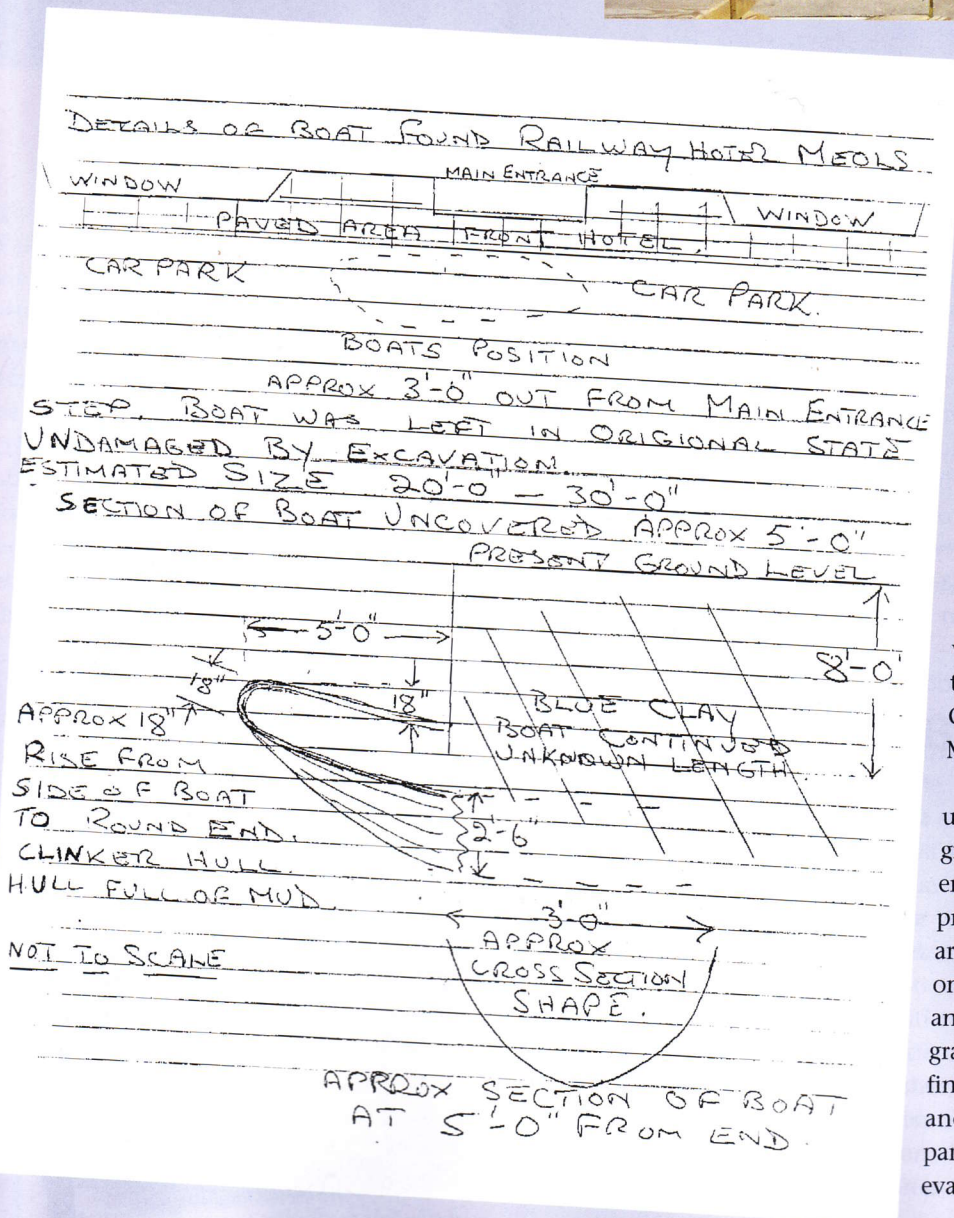 DETAILS OF BOAT FOUND RAILWAY HOTEL MEOLS
MAIN ENTRANCE
WINDOW
WINDOW
PAVED AREA FRONT HOTEL.
CAR PARK
CAR PARK.
BOATS POSITION
APPROX 3'-0" OUT FROM MAIN ENTRANCE
STEP. BOAT WAS LEFT IN ORIGIONAL STATE
UNDAMAGED BY EXCAVATION.
ESTIMATED SIZE 20'-0" - 30'-0"
SECTION OF BOAT UNCOVERED APPROX 5'-0"
PRESENT GROUND LEVEL
5'-0"
8'-0'
18"
18"
BLUE CLAY
BOAT CONTINUED
UNKNOWN LENGTH
APPROX 18"
RISE FROM
SIDE OF BOAT
TO ROUND END.
CLINKER HULL.
HULL FULL OF MUD.
2'-6"
3'-0"
APPROX
CROSS SECTION
SHAPE.
NOT TO SCALE
APPROX SECTION OF BOAT
AT 5'-0" FROM END.